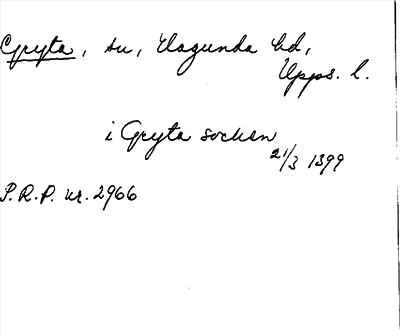 Gryta, sn, Lagunda hd,
Upps. l.
i Gryta socken
21/3 1399
P.R.P. nr. 2966